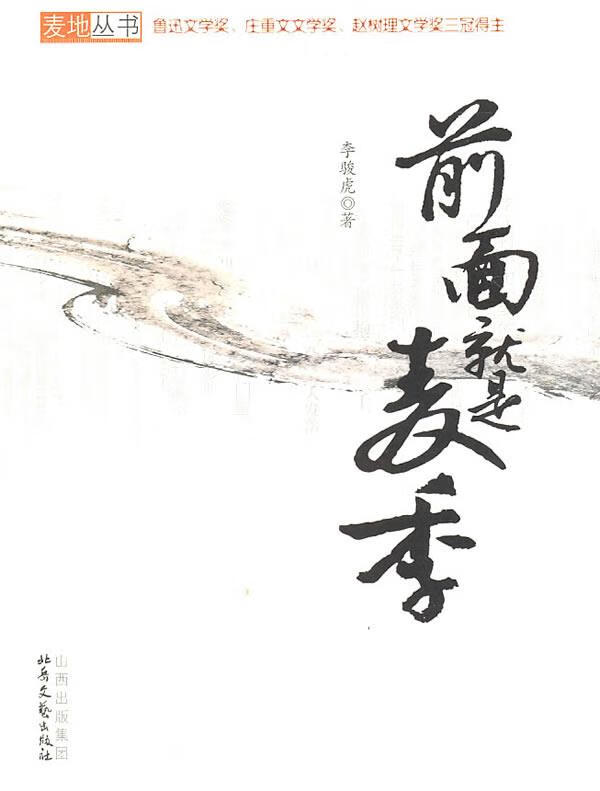 麦地丛书
鲁迅文学奖、庄重文文学奖、赵树理文学奖三冠得主
前面就是麦季
李骏虎◎著
山西出版集团
北岳文艺出版社